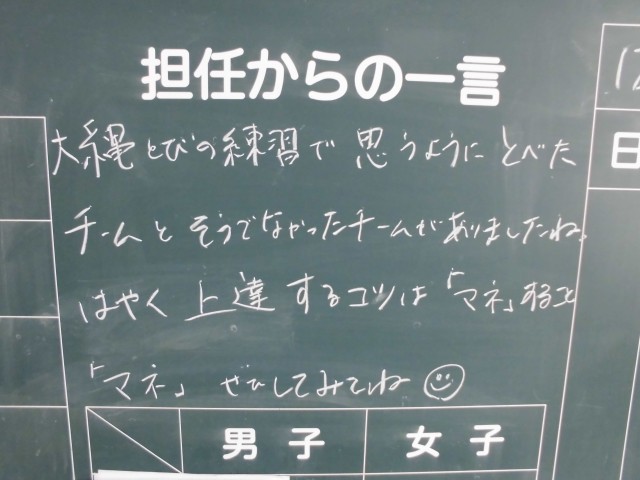 担任からの一言
大縄とびの練習で思うようにとべた
チームとそうでなかったチームがありましたね。
はやく上達するコツは「マネ」すること
「マネ」ぜひしてみてね
日
男子 女子